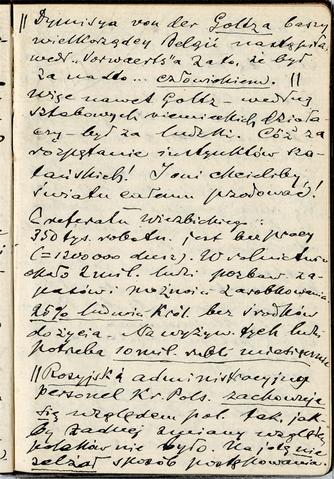 || Dymisya von der Goltza baszy
wielkorządcy Belgii nastąpiła
wedł. „Vorwaerts'a" za to, że był
za nadto... człowiekiem. ||
Więc nawet Goltz – według
sztabowych niemieckich działa-
czy – był za ludzki. Cóż za
rozpętanie instynktów sza-
tańskich! I oni chcieliby
światu całemu przodować!
Z referatu Wierzbickiego:
350 tys. robotn. jest bez pracy
(= 1200 000 dusz). W rolnictwie
około 2 mil. ludzi pozbaw. za-
pasów i możności zarobkowania
25% ludności Król. bez środków
do życia. – Na wyżyw. tych ludzi
potrzeba 10 mil. rubli miesięcznie
|| Rosyjski administracyjny
personel Kr. Pols. zachowuje
się względem pol. tak, jak
by żadnej zmiany względ.
polaków nie było. Na jotę nie
zelżał sposób postępowania.